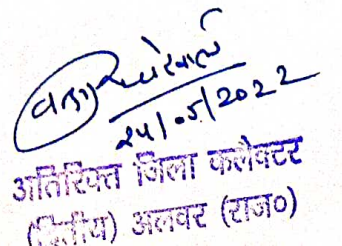 24/05/2022
अतिरिक्त जिला कलेक्टर
(द्वितीय) अलवर (राज०)